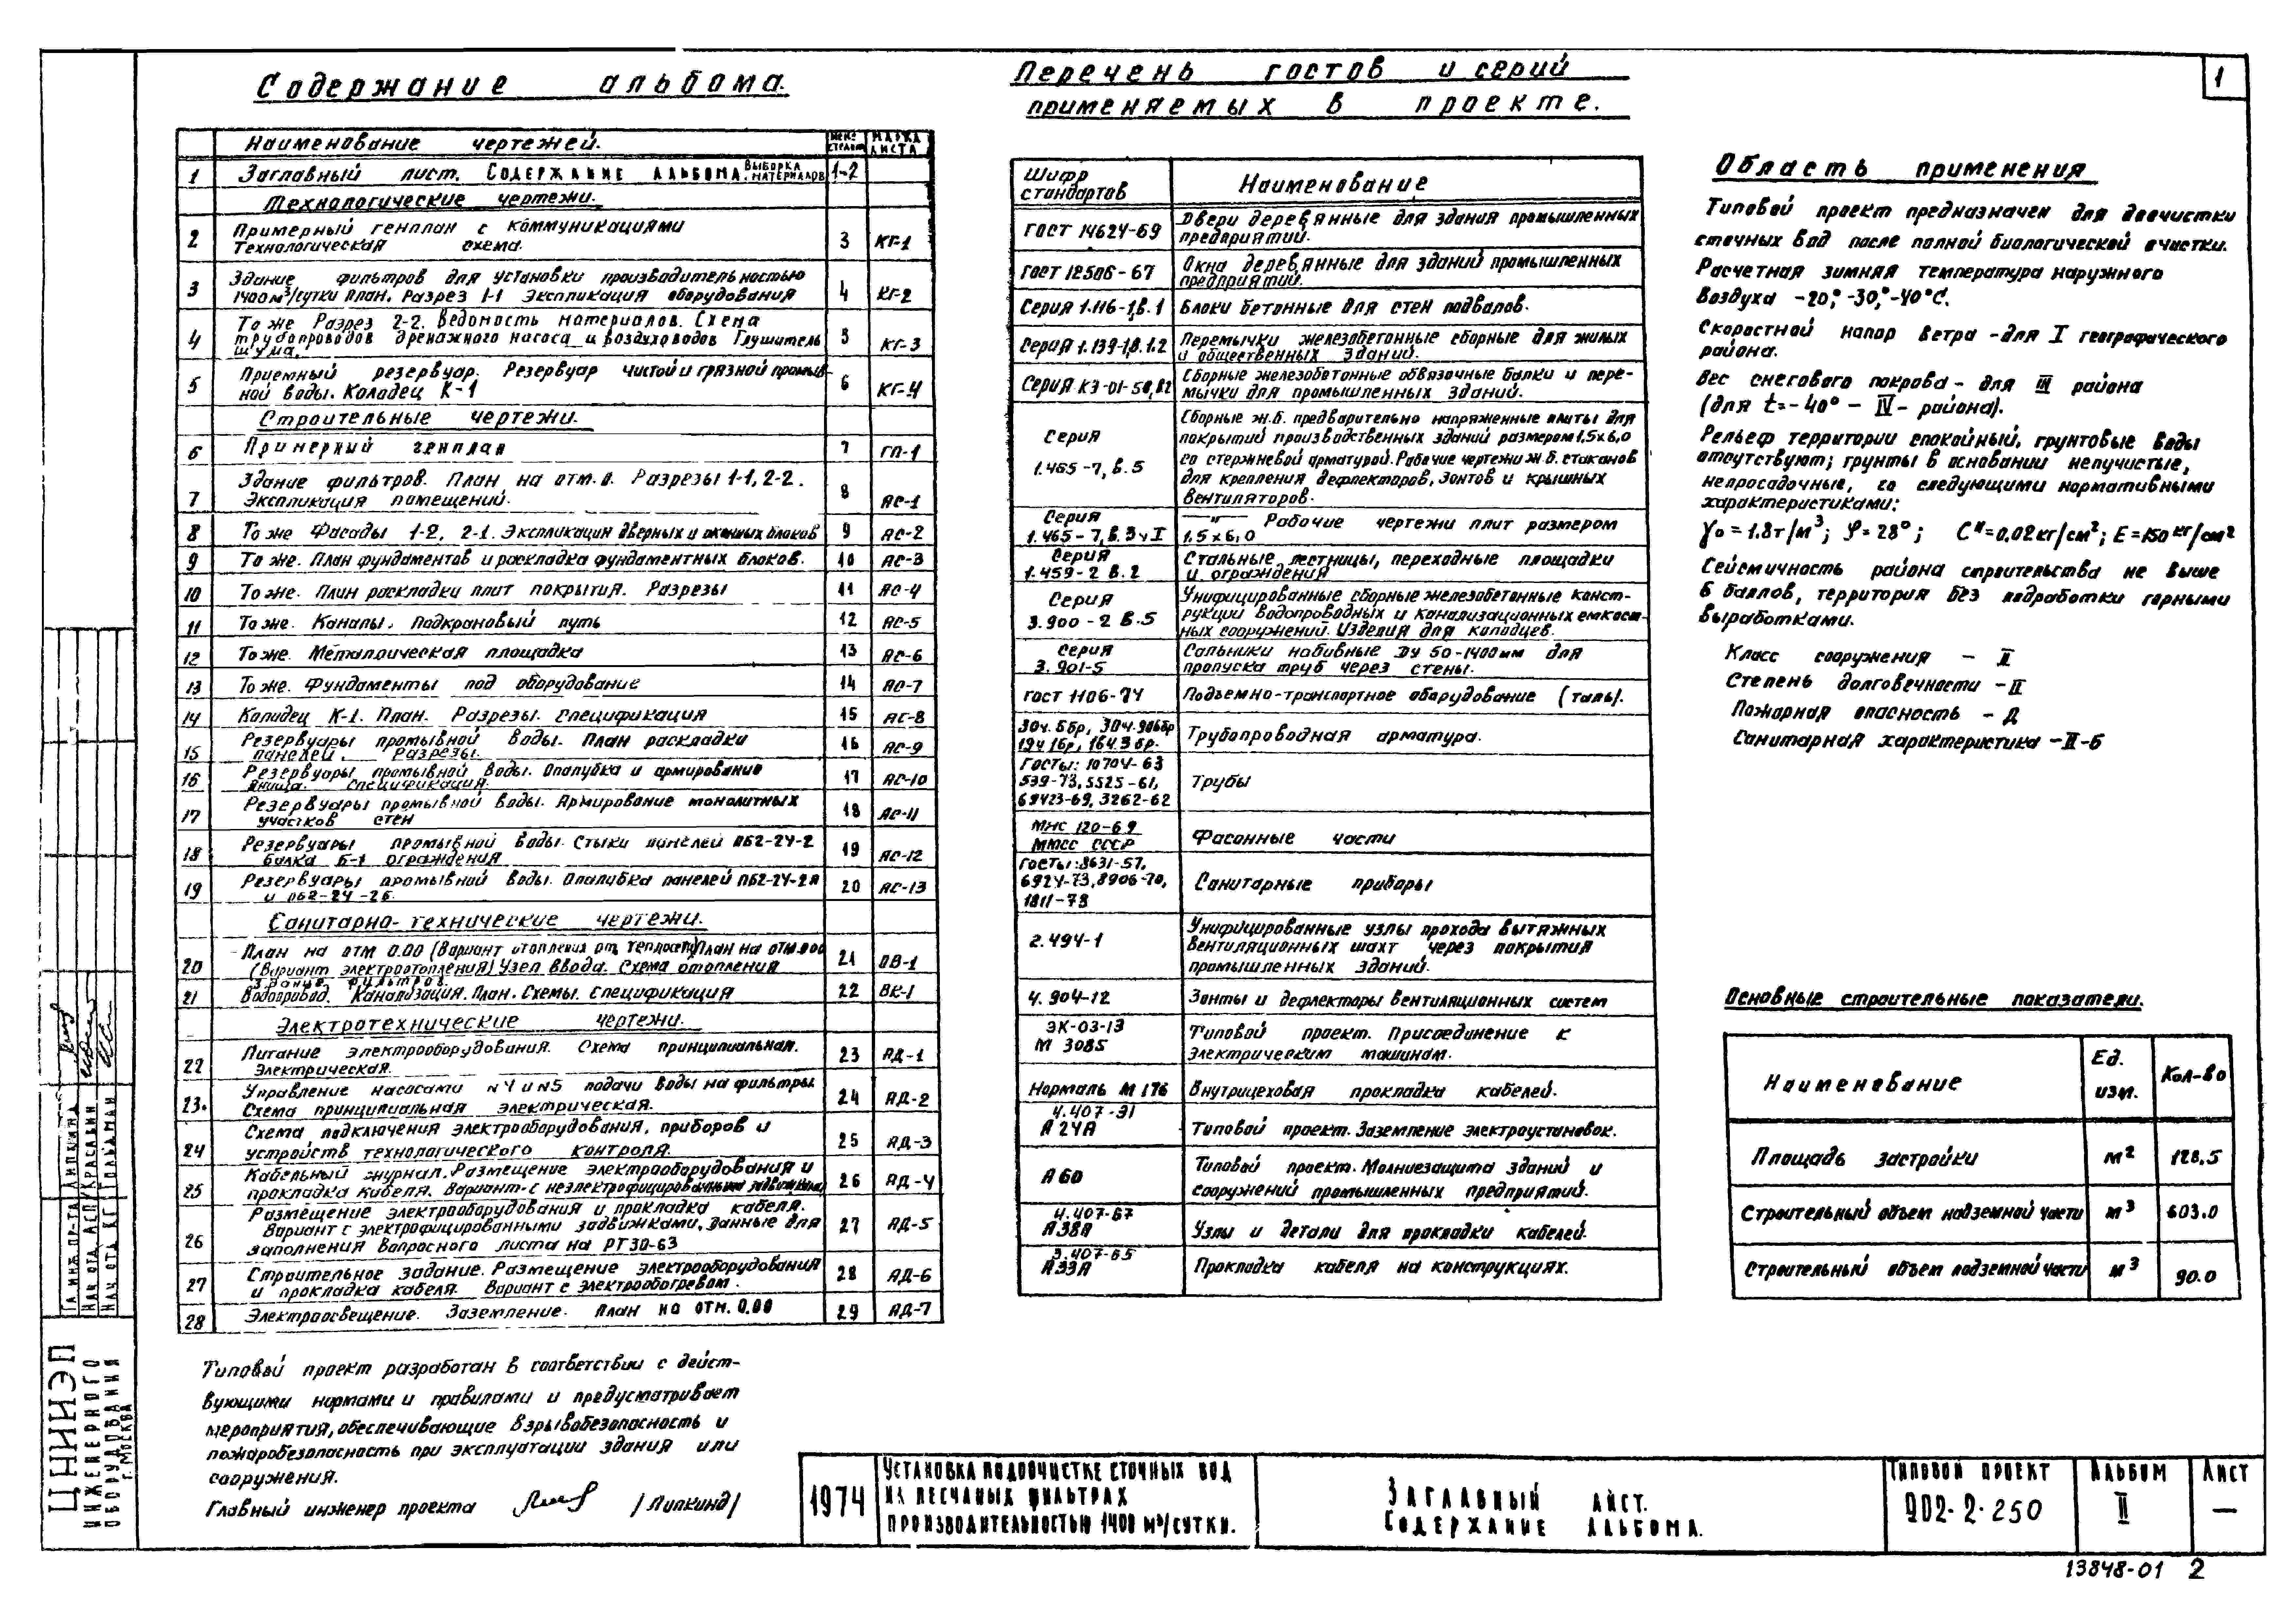 1
Содержание альбома.
Наименование чертежей. Марка листа
1 Заглавный лист. Содержание альбома. Выборка материалов 1-2
Технологические чертежи.
2 Примерный генплан с коммуникациями
Технологическая схема. 3 КГ-1
3 Здание фильтров для установки производительностью
1400 м³/сутки План. Разрез 1-1 Экспликация оборудования 4 КГ-2
4 То же Разрез 2-2. Ведомость материалов. Схема
трубопроводов дренажного насоса и воздуховодов Глушитель
шума. 5 КГ-3
5 Приемный резервуар. Резервуар чистой и грязной промыв-
ной воды. Колодец К-1 6 КГ-4
Строительные чертежи.
6 Примерный генплан 7 ГП-1
7 Здание фильтров. План на отм.0. Разрезы 1-1, 2-2.
Экспликация помещений. 8 АС-1
8 То же Фасады 1-2, 2-1. Экспликация дверных и оконных блоков 9 АС-2
9 То же. План фундаментов и раскладка фундаментных блоков. 10 АС-3
10 То же. План раскладки плит покрытия. Разрезы 11 АС-4
11 То же. Каналы. Подкрановый путь 12 АС-5
12 То же. Металлическая площадка 13 АС-6
13 То же. Фундаменты под оборудование 14 АС-7
14 Колодец К-1. План. Разрезы. Спецификация 15 АС-8
15 Резервуары промывной воды. План раскладки
панелей. Разрезы. 16 АС-9
16 Резервуары промывной воды. Опалубка и армирование
днища. Спецификация. 17 АС-10
17 Резервуары промывной воды. Армирование монолитных
участков стен 18 АС-11
18 Резервуары промывной воды. Стыки панелей ПБ2-24-2
балка Б-1 ограждения 19 АС-12
19 Резервуары промывной воды. Опалубка панелей ПБ2-24-2а
и ПБ2-24-2б. 20 АС-13
Санитарно-технические чертежи.
20 План на отм 0.00 (Вариант отопления от теплосети) План на отм.0.00
(Вариант электроотопления) Узел ввода. Схема отопления 21 ОВ-1
Здание фильтров.
21 Водопровод. Канализация. План. Схемы. Спецификация 22 ВК-1
Электротехнические чертежи.
22 Питание электрооборудования. Схема принципиальная.
Электрическая. 23 АД-1
23. Управление насосами N4 и N5 подачи воды на фильтры.
Схема принципиальная электрическая. 24 АД-2
24 Схема подключения электрооборудования, приборов и
устройств технологического контроля. 25 АД-3
25 Кабельный журнал. Размещение электрооборудования и
прокладка кабеля. Вариант с неэлектрофицированными задвижками 26 АД-4
26 Размещение электрооборудования и прокладка кабеля.
Вариант с электрофицированными задвижками, данные для
заполнения вопросного листа на РТ30-63 27 АД-5
27 Строительное задание. Размещение электрооборудования
и прокладка кабеля. Вариант с электрообогревом. 28 АД-6
28 Электроосвещение. Заземление. План на отм. 0.00 29 АД-7
Типовой проект разработан в соответствии с дейст-
вующими нормами и правилами и предусматривает
мероприятия, обеспечивающие взрывобезопасность и
пожаробезопасность при эксплуатации здания или
сооружения.
Главный инженер проекта /Липкинд/
Перечень гостов и серий
применяемых в проекте.
Шифр стандартов Наименование
ГОСТ 14624-69 Двери деревянные для здания промышленных
предприятий.
ГОСТ 12506-67 Окна деревянные для зданий промышленных
предприятий.
Серия 1.116-1, В.1 Блоки бетонные для стен подвалов.
Серия 1.139-1, В.1.2 Перемычки железобетонные сборные для жилых
и общественных зданий.
Серия КЭ-01-58, В2 Сборные железобетонные обвязочные балки и пере-
мычки для промышленных зданий.
Серия 1.465-7, В.5 Сборные ж.б. предварительно напряженные плиты для
покрытий производственных зданий размером 1,5х6,0
со стержневой арматурой. Рабочие чертежи ж.б. стаканов
для крепления дефлекторов, зонтов и крышных
вентиляторов.
Серия 1.465-7, В.3ч I —"— Рабочие чертежи плит размером
1,5х6,0
Серия 1.459-2 В.2 Стальные лестницы, переходные площадки
и ограждения
Серия 3.900-2 В.5 Унифицированные сборные железобетонные конст-
рукции водопроводных и канализационных емкост-
ных сооружений. Изделия для колодцев.
Серия 3.901-5 Сальники набивные Ду 50-1400мм для
пропуска труб через стены.
ГОСТ 1106-74 Подъемно-транспортное оборудование (таль).
30ч.6бр, 30ч.906бр
19ч16р, 16ч.3бр. Трубопроводная арматура.
ГОСТы: 10704-63
539-73, 5525-61,
69423-69, 3262-62 Трубы
МНС 120-69
ММСС СССР Фасонные части
ГОСТы: 8631-57,
6924-73, 8906-70,
1811-73 Санитарные приборы
2.494-1 Унифицированные узлы прохода вытяжных
вентиляционных шахт через покрытия
промышленных зданий.
4.904-12 Зонты и дефлекторы вентиляционных систем
ЭК-03-13
М 3085 Типовой проект. Присоединение к
электрическим машинам.
Нормаль М 176 Внутрицеховая прокладка кабелей.
4.407-31
А 24А Типовой проект. Заземление электроустановок.
А 60 Типовой проект. Молниезащита зданий и
сооружений промышленных предприятий.
4.407-67
А38А Узлы и детали для прокладки кабелей.
3.407-65
А33А Прокладка кабеля на конструкциях.
Область применения
Типовой проект предназначен для доочистки
сточных вод после полной биологической очистки.
Расчетная зимняя температура наружного
воздуха -20°, -30°, -40°С.
Скоростной напор ветра - для I географического
района.
Вес снегового покрова - для III района
(для t=-40° - IV - района).
Рельеф территории спокойный, грунтовые воды
отсутствуют; грунты в основании непучистые,
непросадочные, со следующими нормативными
характеристиками:
γо = 1.8т/м³; φ = 28°; Cᴴ = 0,02 кг/см²; E = 150 кг/см²
Сейсмичность района строительства не выше
6 баллов, территория без подработки горными
выработками.
Класс сооружения - II
Степень долговечности - II
Пожарная опасность - Д
Санитарная характеристика - II-б
Основные строительные показатели.
Наименование Ед. изм. Кол-во
Площадь застройки м² 128,5
Строительный объем надземной части м³ 603.0
Строительный объем подземной части м³ 90.0
ЦНИИЭП
инженерного
оборудования
г. Москва
Гл. инж. пр-та Липкинд
Нач. отд. КГ Гольдман
1974
Установка по доочистке сточных вод
на песчаных фильтрах
производительностью 1400 м³/сутки.
Заглавный лист.
Содержание альбома.
Типовой проект
902-2-250
Альбом
II
Лист
—
13848-01 2